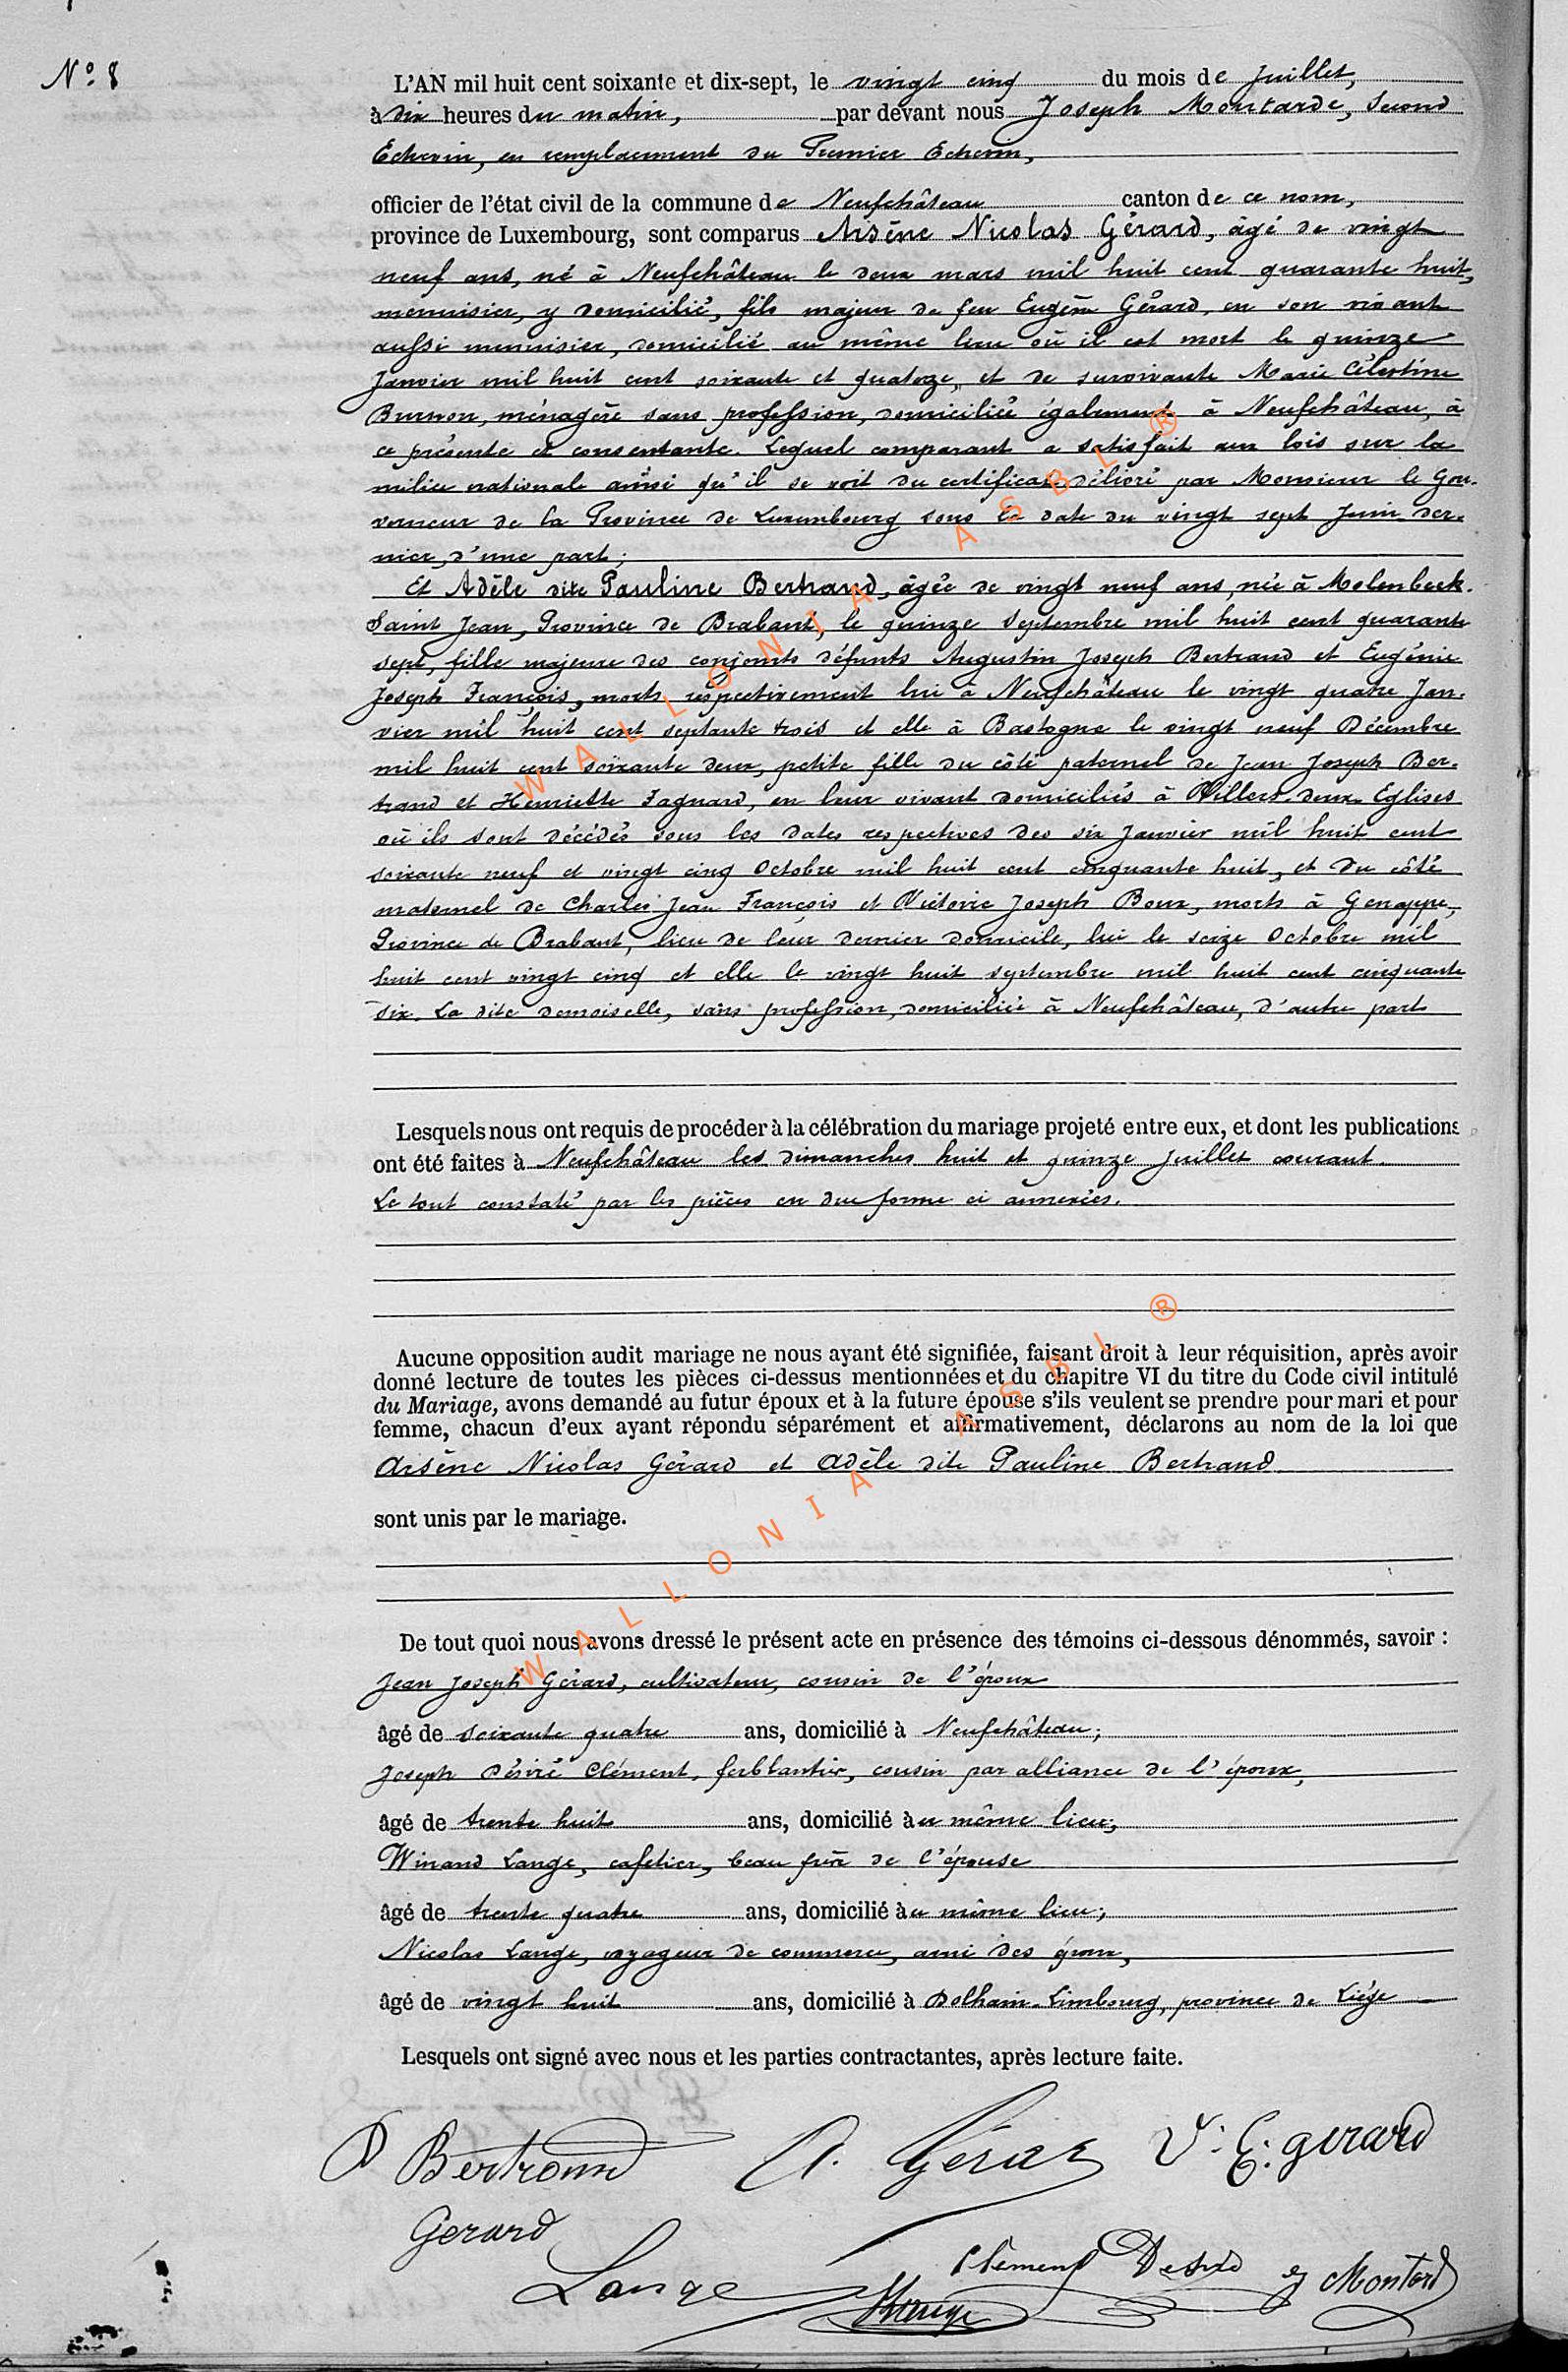 N° 8
L'AN mil huit cent soixante et dix-sept, le vingt cinq du mois de Juillet,
à dix heures du matin, par devant nous Joseph Montarde, Second
Echevin, en remplacement du Premier Echevin,
officier de l'état civil de la commune de Neufchâteau canton de ce nom,
province de Luxembourg, sont comparus Arsène Nicolas Gérard, âgé de vingt
neuf ans, né à Neufchâteau le deux mars mil huit cent quarante huit,
menuisier, y domicilié, fils majeur de feu Eugène Gérard, en son vivant
aussi menuisier, domicilié au même lieu où il est mort le quinze
Janvier mil huit cent soixante et quatorze, et de survivante Marie Célestine
Burnon, ménagère sans profession, domiciliée également à Neufchâteau, à
ce présente et consentante. Lequel comparant a satisfait aux lois sur la
milice nationale ainsi qu'il se voit du certificat délivré par Monsieur le Gou-
verneur de la Province de Luxembourg sous la date du vingt sept Juin der-
nier, d'une part;
Et Adèle dite Pauline Bertrand, âgée de vingt neuf ans, née à Molenbeek-
Saint Jean, Province de Brabant, le quinze Septembre mil huit cent quarante
sept, fille majeure des conjoints défunts Augustin Joseph Bertrand et Eugénie
Joseph François, morts respectivement lui à Neufchâteau le vingt quatre Jan-
vier mil huit cent septante trois et elle à Bastogne le vingt neuf Décembre
mil huit cent soixante deux, petite fille du côté paternel de Jean Joseph Ber-
trand et Henriette Fagnard, en leur vivant domiciliés à Villers-deux-Eglises
où ils sont décédés sous les dates respectives des six Janvier mil huit cent
soixante neuf et vingt cinq Octobre mil huit cent cinquante huit, et du côté
maternel de Charles Jean François et Victoire Joseph Boux, morts à Genappe,
Province de Brabant, lieu de leur dernier domicile, lui le seize Octobre mil
huit cent vingt cinq et elle le vingt huit septembre mil huit cent cinquante
six. La dite demoiselle, sans profession, domiciliée à Neufchâteau, d'autre part
Lesquels nous ont requis de procéder à la célébration du mariage projeté entre eux, et dont les publications
ont été faites à Neufchâteau les dimanches huit et quinze Juillet courant.
Le tout constaté par les pièces en due forme ci annexées.
Aucune opposition audit mariage ne nous ayant été signifiée, faisant droit à leur réquisition, après avoir
donné lecture de toutes les pièces ci-dessus mentionnées et du chapitre VI du titre du Code civil intitulé
du Mariage, avons demandé au futur époux et à la future épouse s'ils veulent se prendre pour mari et pour
femme, chacun d'eux ayant répondu séparément et affirmativement, déclarons au nom de la loi que
Arsène Nicolas Gérard et Adèle dite Pauline Bertrand
sont unis par le mariage.
De tout quoi nous avons dressé le présent acte en présence des témoins ci-dessous dénommés, savoir :
Jean Joseph Gérard, cultivateur, cousin de l'époux
âgé de soixante quatre ans, domicilié à Neufchâteau;
Joseph Désiré Clément, ferblantier, cousin par alliance de l'époux,
âgé de trente huit ans, domicilié au même lieu;
Winand Lange, cafetier, beau frère de l'épouse
âgé de trente quatre ans, domicilié au même lieu;
Nicolas Lange, voyageur de commerce, ami des époux,
âgé de vingt huit ans, domicilié à Dolhain-Limbourg, province de Liège
Lesquels ont signé avec nous et les parties contractantes, après lecture faite.
Bertrand A. Gérard V. E. gerard
Gerard
Lange Clément Désiré
WALLONIA ASBL ®
WALLONIA ASBL ®